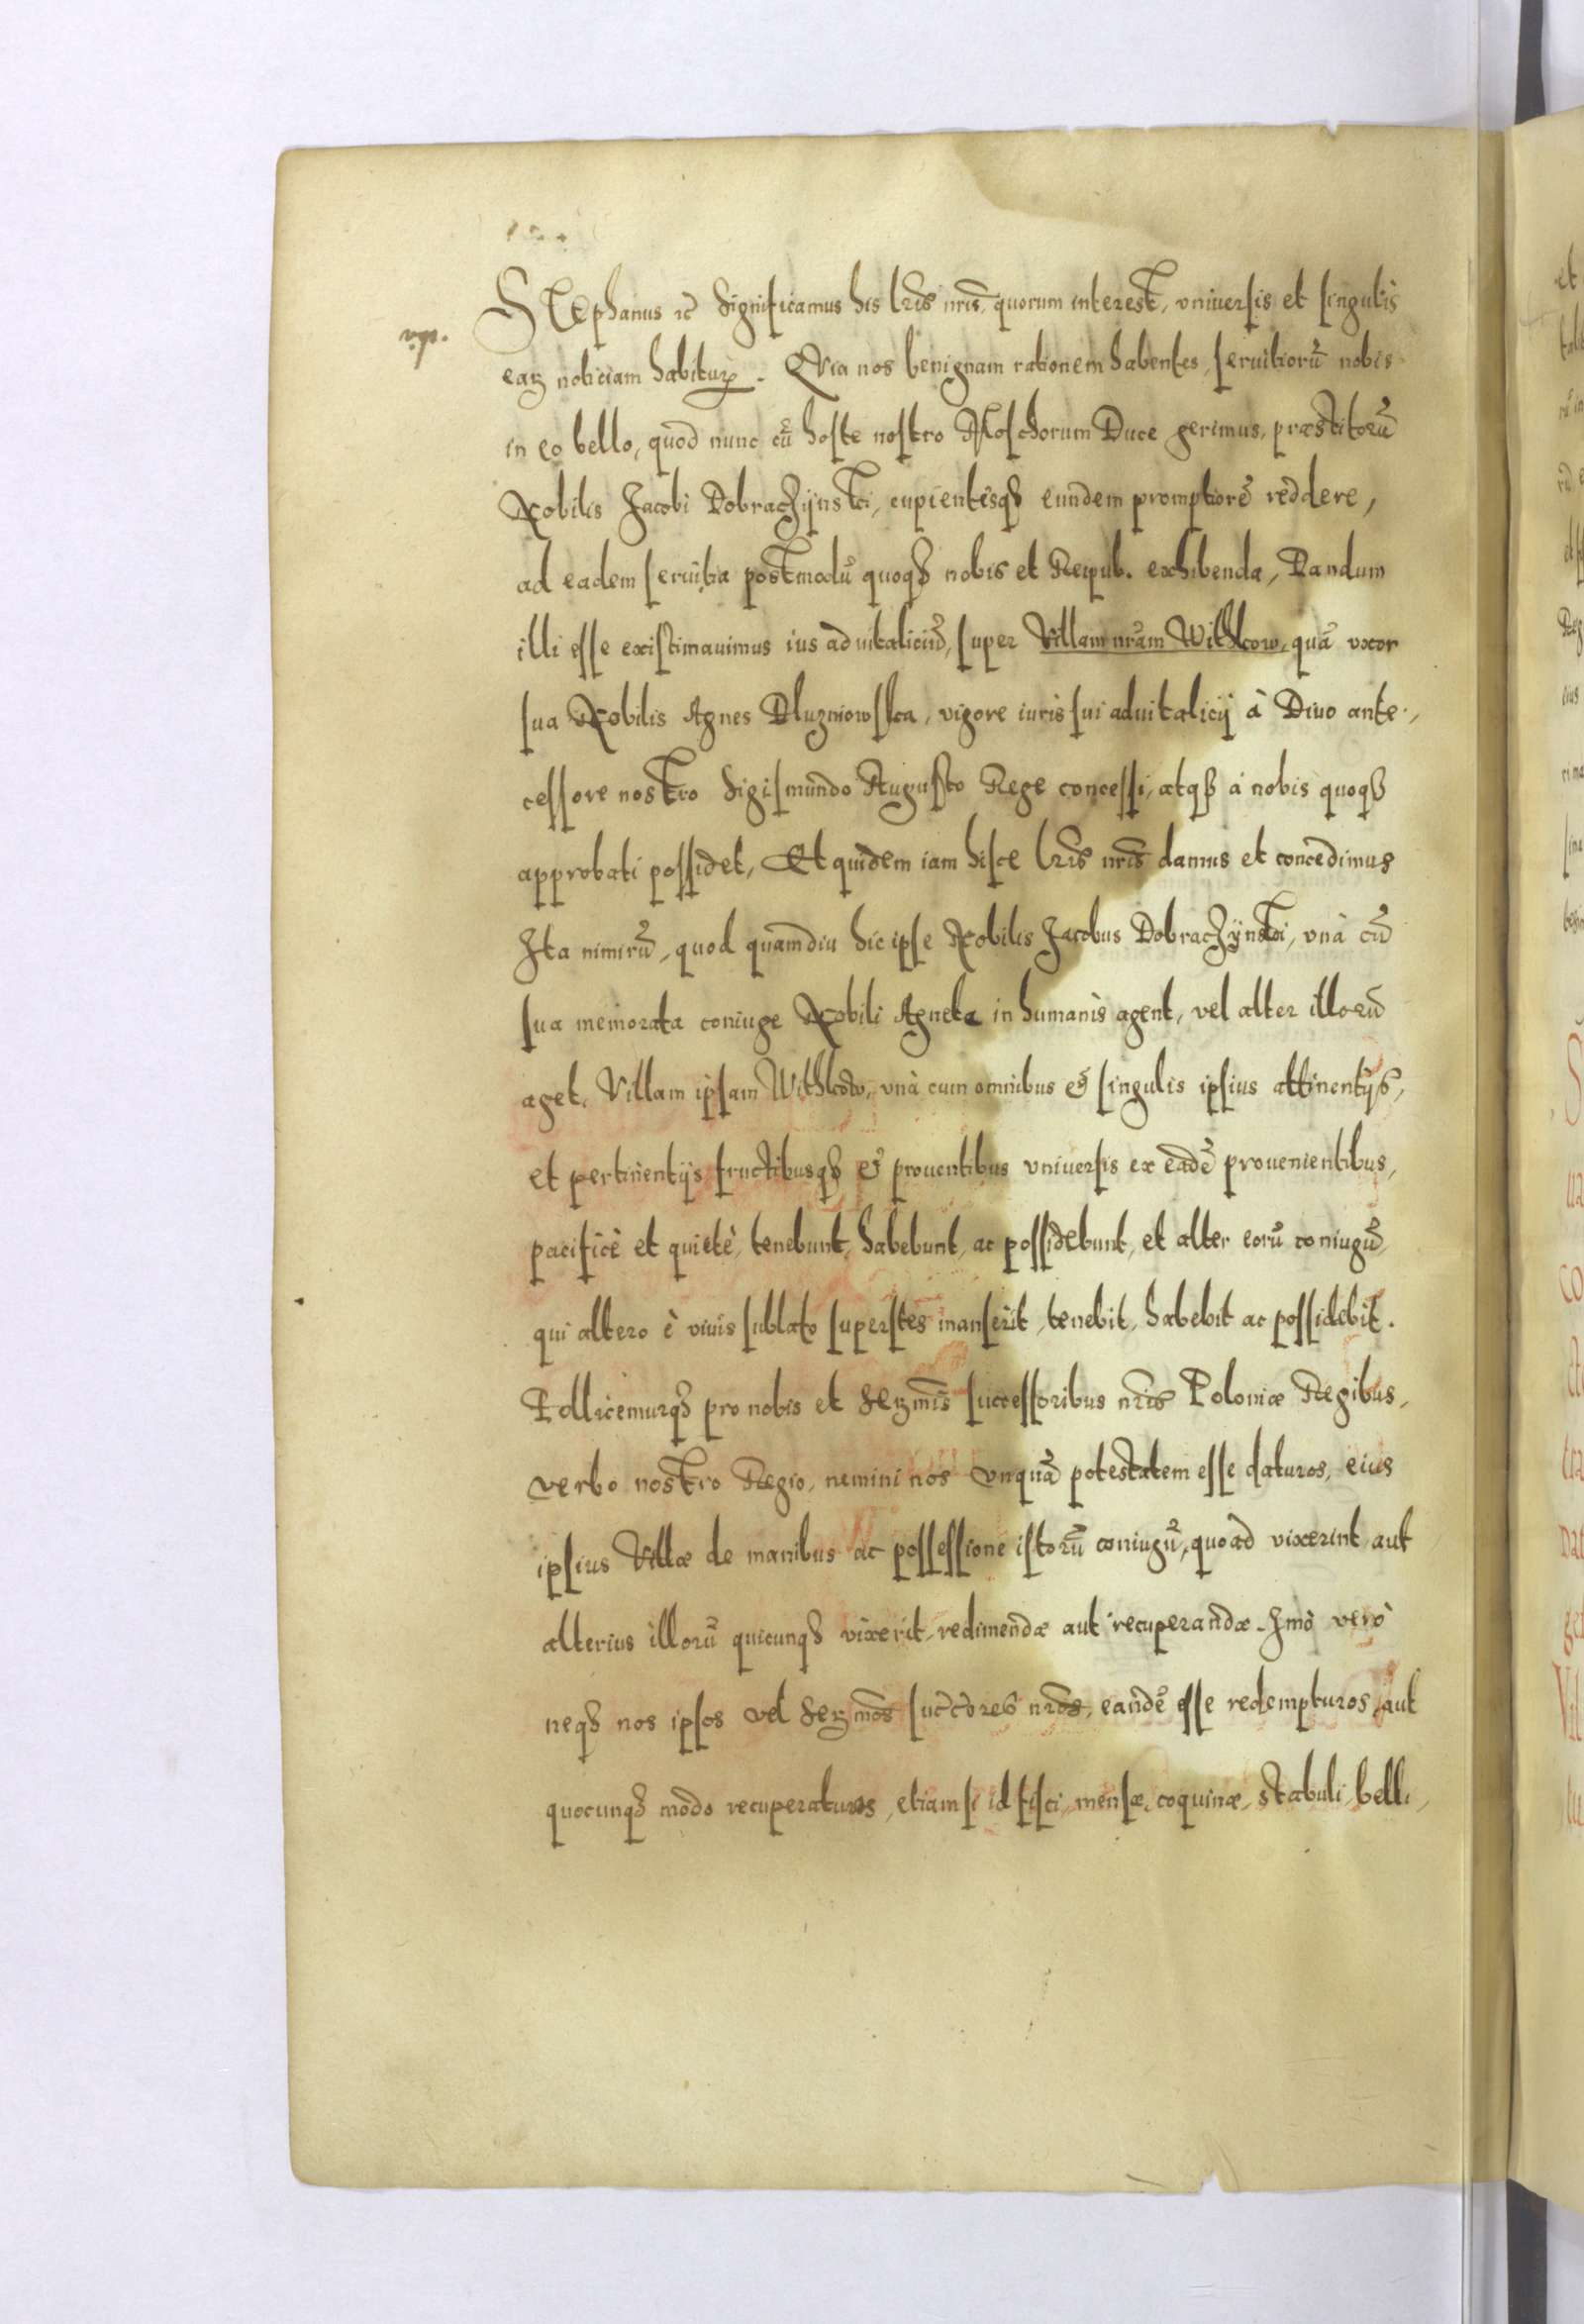 Stephanus etc Significamus his lr̃is nr̃is, quorum interest, vniuersis et singulis
earꝫ noticiam habiturꝫ. Qvia nos benignam rationem habentes, seruitiorũ nobis
in eo bello, quod nunc cũ hoste nostro Moschorum Duce gerimus, præstitorũ
Nobilis Jacobi Dobraczÿnski, cupientesqꝫ eundem promptiorẽ reddere,
ad eadem seruitia postmodũ quoqꝫ nobis et Reipub. exhibenda, Dandum
illi esse existimauimus ius aduitaliciũ, super Villam nr̃am Withkow, quã vxor
sua Nobilis Agnes Dluzniowska, vigore iuris sui aduitalicij à Diuo ante,
cessore nostro Sigismundo Augusto Rege concessi, atqꝫ à nobis quoqꝫ
approbati possidet, Et quidem iam hisce lr̃is nr̃is damus et concedimus
Ita nimirũ, quod quamdiu hic ipse Nobilis Jacobus Dobraczÿnski, vnà cũ
sua memorata coniuge Nobili Agneta in humanis agent, vel alter illorũ
aget, Villam ipsam Withkow, vnà cum omnibus & singulis ipsius attinentijs,
et pertinentijs fructibusqꝫ & prouentibus vniuersis ex eadẽ prouenientibus,
pacificè et quietè, tenebunt, habebunt, ac possidebunt, et alter eorũ coniugũ,
qui altero è viuis sublato superstes manserit, tenebit, habebit ac possidebit.
Pollicemurqꝫ pro nobis et Serꝫmis successoribus nr̃is Poloniæ Regibus,
verbo nostro Regio, nemini nos vnquã potestatem esse daturos, eius
ipsius Villæ de manibus ac possessione istorũ coniugũ, quoad vixerint aut
alterius illorũ quicunqꝫ vixerit, redimendæ aut recuperandæ. Imò verò
neqꝫ nos ipsos vel Serꝫmos succ̃ores nr̃os, eandẽ esse redempturos, aut
quocunqꝫ modo recuperaturos, etiamsi id fisci, mensæ, coquinæ, stabuli, belli,